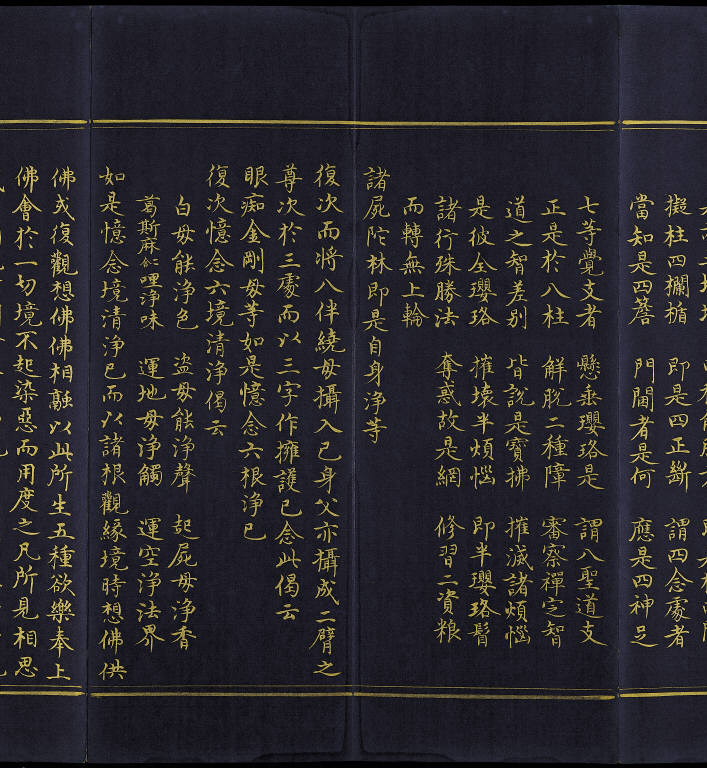 擬柱四欄楯 即是四正斷 謂四念處者
當知是四簷 門閫者是何 應是四神足
七等覺支者 懸垂瓔珞是 謂八聖道支
正是於八柱 解脫二種障 審察禪定智
道之智差別 皆說是寶拂 摧滅諸煩惱
是彼全瓔珞 摧壞半煩惱 即半瓔珞鬘
諸行殊勝法 奪惑故是網 修習二資粮
而轉無上輪
諸屍陀林即是自身淨等
復次而將八伴繞母攝入已身父亦攝成二臂之
尊次於三處而以三字作擁護已念此偈云
眼痴金剛母等如是憶念六根淨已
復次憶念六境清淨偈云
白母能淨色 盜母能淨聲 起屍母淨香
葛斯麻哩淨味 運地母淨觸 運空淨法界
如是憶念境清淨已而以諸根觀緣境時想佛供
佛或復觀想佛佛相融以此所生五種欲樂奉上
佛會於一切境不起染惡而用度之凡所見相思